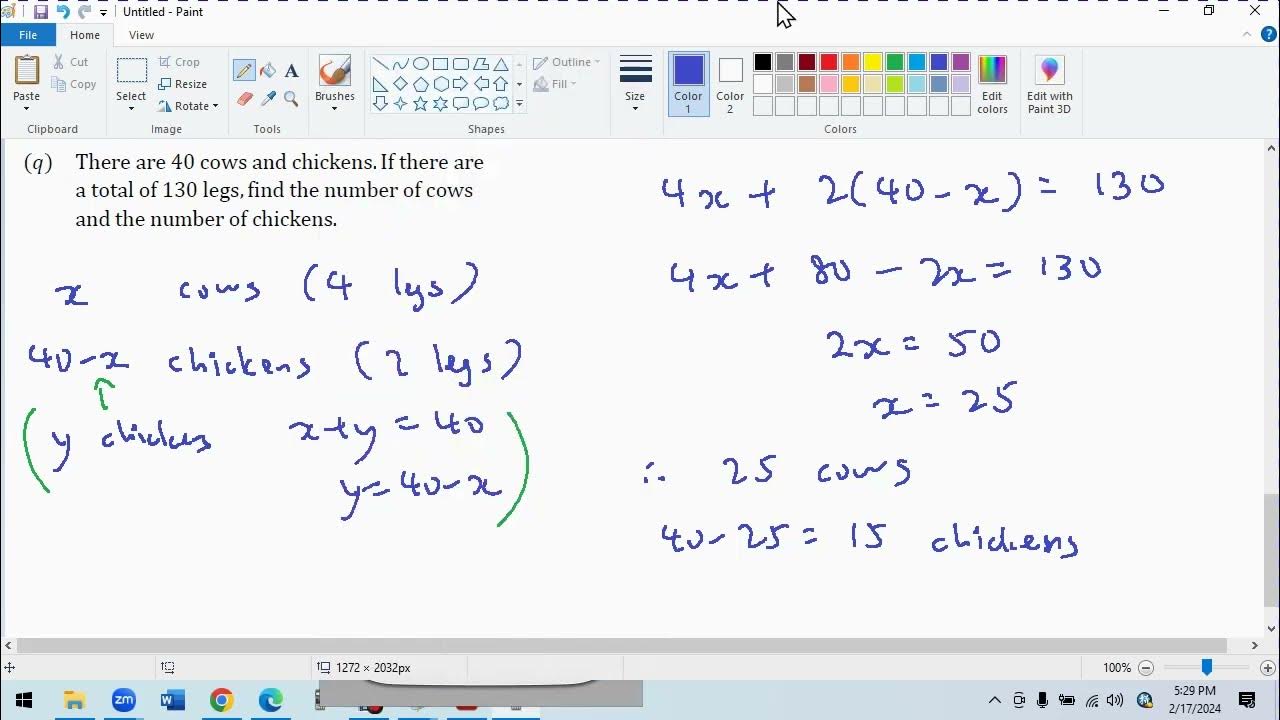 Untitled - Paint
File
Home
View
Paste
Cut
Copy
Clipboard
Select
Crop
Resize
Rotate
Image
A
Tools
Brushes
Outline
Fill
Shapes
Size
Color 1
Color 2
Edit colors
Colors
Edit with Paint 3D
(q) There are 40 cows and chickens. If there are
a total of 130 legs, find the number of cows
and the number of chickens.
x cows (4 legs)
40-x chickens (2 legs)
(y chickens x+y = 40
y = 40-x)
4x + 2(40-x) = 130
4x + 80 - 2x = 130
2x = 50
x = 25
∴ 25 cows
40-25 = 15 chickens
1272 × 2032px
100%
zm
W
5:29 PM
2/17/2024